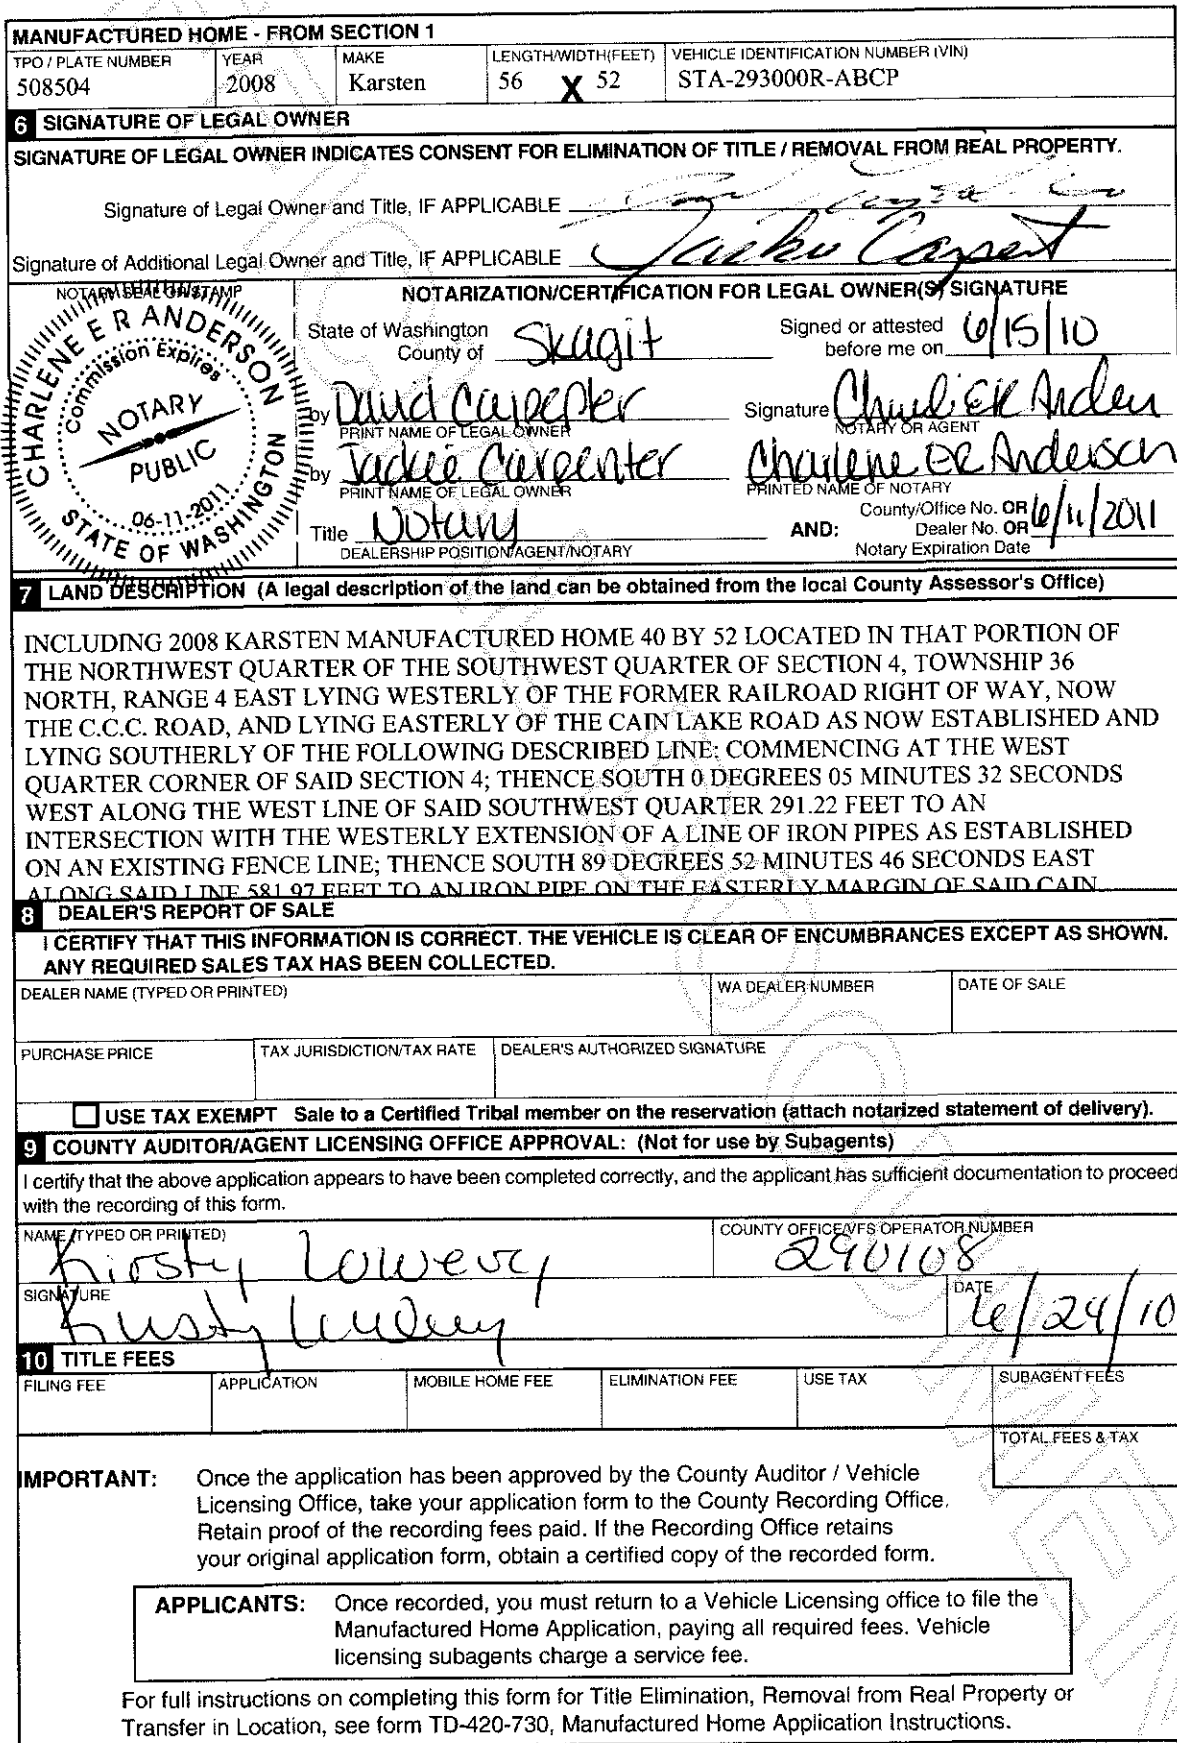 MANUFACTURED HOME - FROM SECTION 1
TPO / PLATE NUMBER YEAR MAKE LENGTH/WIDTH(FEET) VEHICLE IDENTIFICATION NUMBER (VIN)
508504 2008 Karsten 56 X 52 STA-293000R-ABCP
6 SIGNATURE OF LEGAL OWNER
SIGNATURE OF LEGAL OWNER INDICATES CONSENT FOR ELIMINATION OF TITLE / REMOVAL FROM REAL PROPERTY.
Signature of Legal Owner and Title, IF APPLICABLE
Signature of Additional Legal Owner and Title, IF APPLICABLE
NOTARY SEAL OR STAMP
CHARLENE E R ANDERSON
Commission Expires
NOTARY
PUBLIC
06-11-2011
STATE OF WASHINGTON
NOTARIZATION/CERTIFICATION FOR LEGAL OWNER(S) SIGNATURE
State of Washington
County of Skagit
Signed or attested
before me on 6/15/10
by David Carpenter
PRINT NAME OF LEGAL OWNER
Signature
NOTARY OR AGENT
by Jackie Carpenter
PRINT NAME OF LEGAL OWNER
Charlene ER Anderson
PRINTED NAME OF NOTARY
Title Notary
DEALERSHIP POSITION/AGENT/NOTARY
AND:
County/Office No. OR
Dealer No. OR
Notary Expiration Date
6/11/2011
7 LAND DESCRIPTION (A legal description of the land can be obtained from the local County Assessor's Office)
INCLUDING 2008 KARSTEN MANUFACTURED HOME 40 BY 52 LOCATED IN THAT PORTION OF
THE NORTHWEST QUARTER OF THE SOUTHWEST QUARTER OF SECTION 4, TOWNSHIP 36
NORTH, RANGE 4 EAST LYING WESTERLY OF THE FORMER RAILROAD RIGHT OF WAY, NOW
THE C.C.C. ROAD, AND LYING EASTERLY OF THE CAIN LAKE ROAD AS NOW ESTABLISHED AND
LYING SOUTHERLY OF THE FOLLOWING DESCRIBED LINE: COMMENCING AT THE WEST
QUARTER CORNER OF SAID SECTION 4; THENCE SOUTH 0 DEGREES 05 MINUTES 32 SECONDS
WEST ALONG THE WEST LINE OF SAID SOUTHWEST QUARTER 291.22 FEET TO AN
INTERSECTION WITH THE WESTERLY EXTENSION OF A LINE OF IRON PIPES AS ESTABLISHED
ON AN EXISTING FENCE LINE; THENCE SOUTH 89 DEGREES 52 MINUTES 46 SECONDS EAST
ALONG SAID LINE 581.97 FEET TO AN IRON PIPE ON THE EASTERLY MARGIN OF SAID CAIN
8 DEALER'S REPORT OF SALE
I CERTIFY THAT THIS INFORMATION IS CORRECT. THE VEHICLE IS CLEAR OF ENCUMBRANCES EXCEPT AS SHOWN.
ANY REQUIRED SALES TAX HAS BEEN COLLECTED.
DEALER NAME (TYPED OR PRINTED) WA DEALER NUMBER DATE OF SALE
PURCHASE PRICE TAX JURISDICTION/TAX RATE DEALER'S AUTHORIZED SIGNATURE
USE TAX EXEMPT Sale to a Certified Tribal member on the reservation (attach notarized statement of delivery).
9 COUNTY AUDITOR/AGENT LICENSING OFFICE APPROVAL: (Not for use by Subagents)
I certify that the above application appears to have been completed correctly, and the applicant has sufficient documentation to proceed
with the recording of this form.
NAME (TYPED OR PRINTED) COUNTY OFFICE/VFS OPERATOR NUMBER
Kirsty Lowery 290108
SIGNATURE DATE
6/24/10
10 TITLE FEES
FILING FEE APPLICATION MOBILE HOME FEE ELIMINATION FEE USE TAX SUBAGENT FEES
TOTAL FEES & TAX
IMPORTANT: Once the application has been approved by the County Auditor / Vehicle
Licensing Office, take your application form to the County Recording Office.
Retain proof of the recording fees paid. If the Recording Office retains
your original application form, obtain a certified copy of the recorded form.
APPLICANTS: Once recorded, you must return to a Vehicle Licensing office to file the
Manufactured Home Application, paying all required fees. Vehicle
licensing subagents charge a service fee.
For full instructions on completing this form for Title Elimination, Removal from Real Property or
Transfer in Location, see form TD-420-730, Manufactured Home Application Instructions.